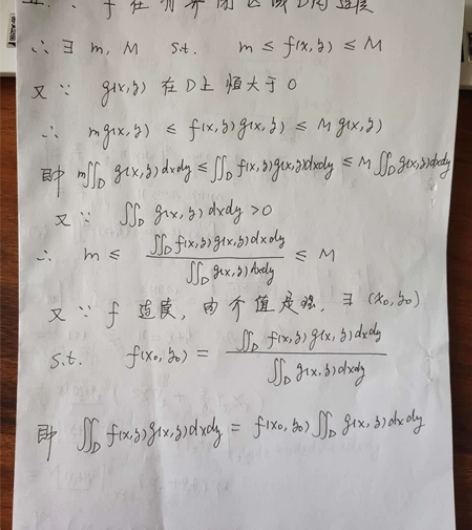 ∵ f 在有界闭区域D内连续
∴ ∃ m, M s.t. m ≤ f(x,y) ≤ M
又∵ g(x,y) 在D上恒大于0
∴ mg(x,y) ≤ f(x,y)g(x,y) ≤ Mg(x,y)
即 m∬_D g(x,y)dxdy ≤ ∬_D f(x,y)g(x,y)dxdy ≤ M∬_D g(x,y)dxdy
又∵ ∬_D g(x,y)dxdy > 0
∴ m ≤ ∬_D f(x,y)g(x,y)dxdy / ∬_D g(x,y)dxdy ≤ M
又∵ f 连续, 由介值定理, ∃ (x₀, y₀)
s.t. f(x₀, y₀) = ∬_D f(x,y)g(x,y)dxdy / ∬_D g(x,y)dxdy
即 ∬_D f(x,y)g(x,y)dxdy = f(x₀, y₀)∬_D g(x,y)dxdy